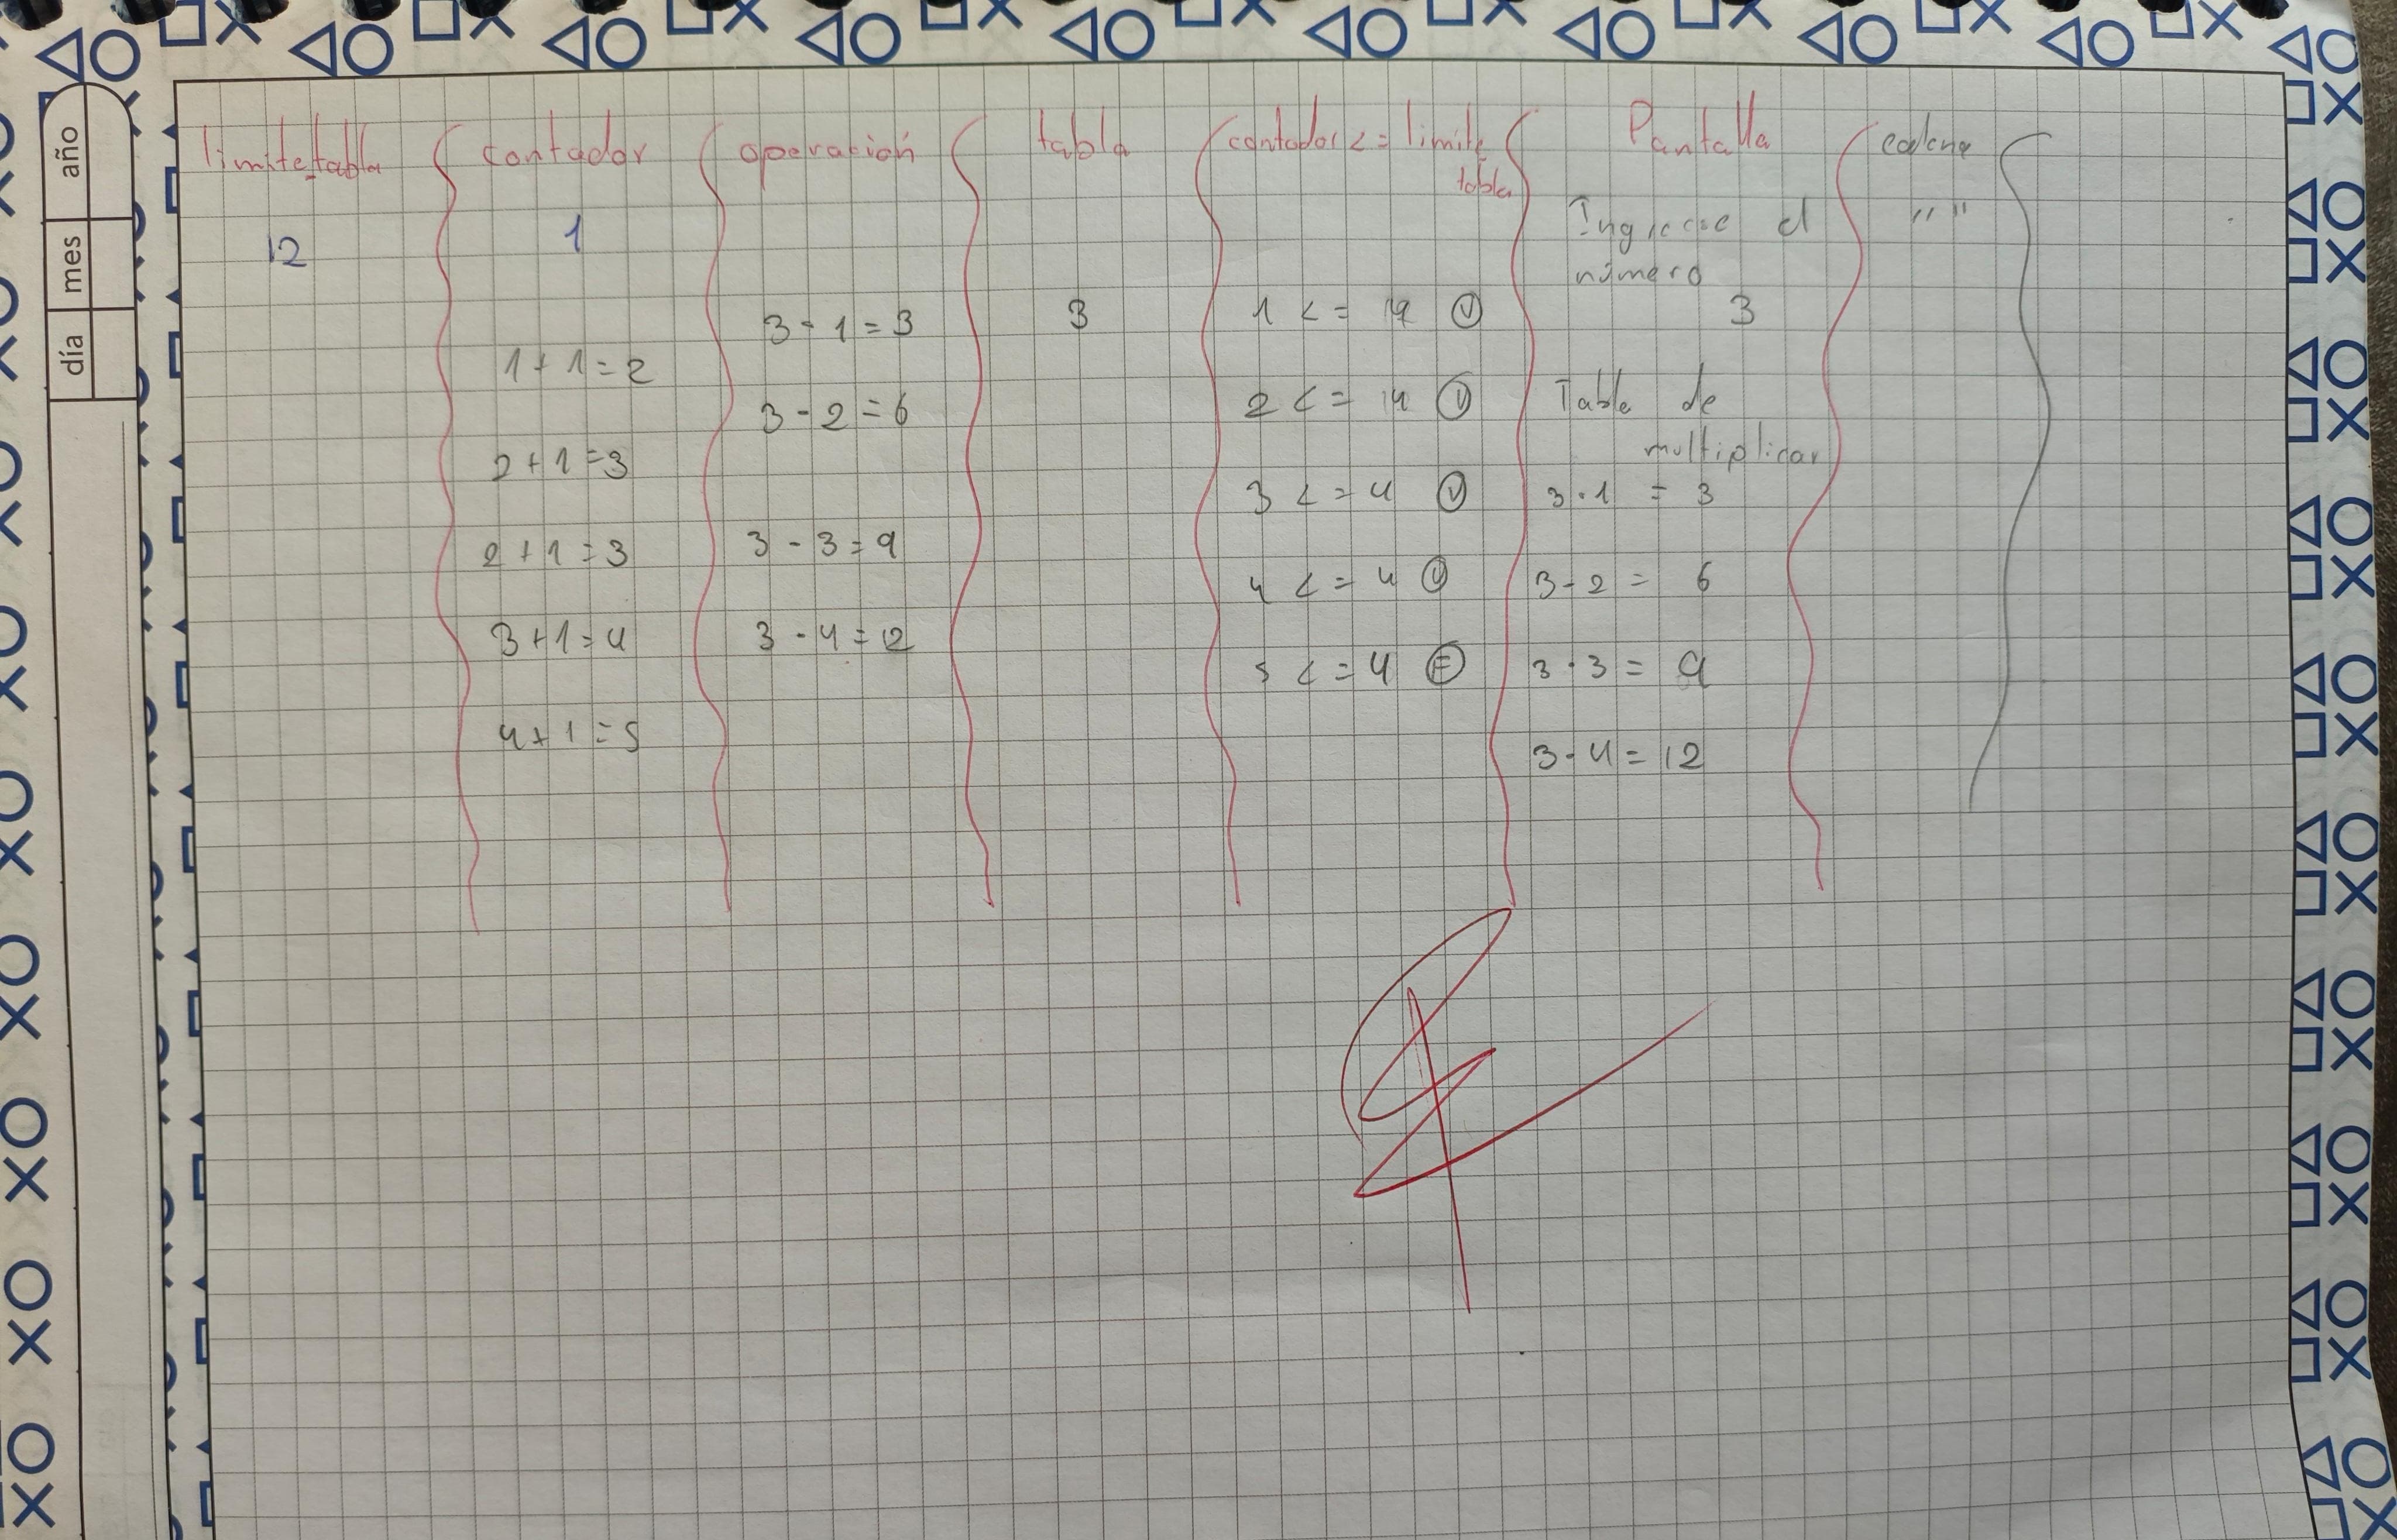 año
mes
día
limite_tabla
12
contador
1
1+1=2
2+1=3
2+1=3
3+1=4
4+1=5
operación
3·1=3
3·2=6
3·3=9
3·4=12
tabla
3
contador <= limite
tabla
1 <= 4 V
2 <= 4 V
3 <= 4 V
4 <= 4 V
5 <= 4 F
Pantalla
Ingrese el
número
3
Tabla de
multiplicar
3·1 = 3
3·2 = 6
3·3 = 9
3·4 = 12
cadena
" "